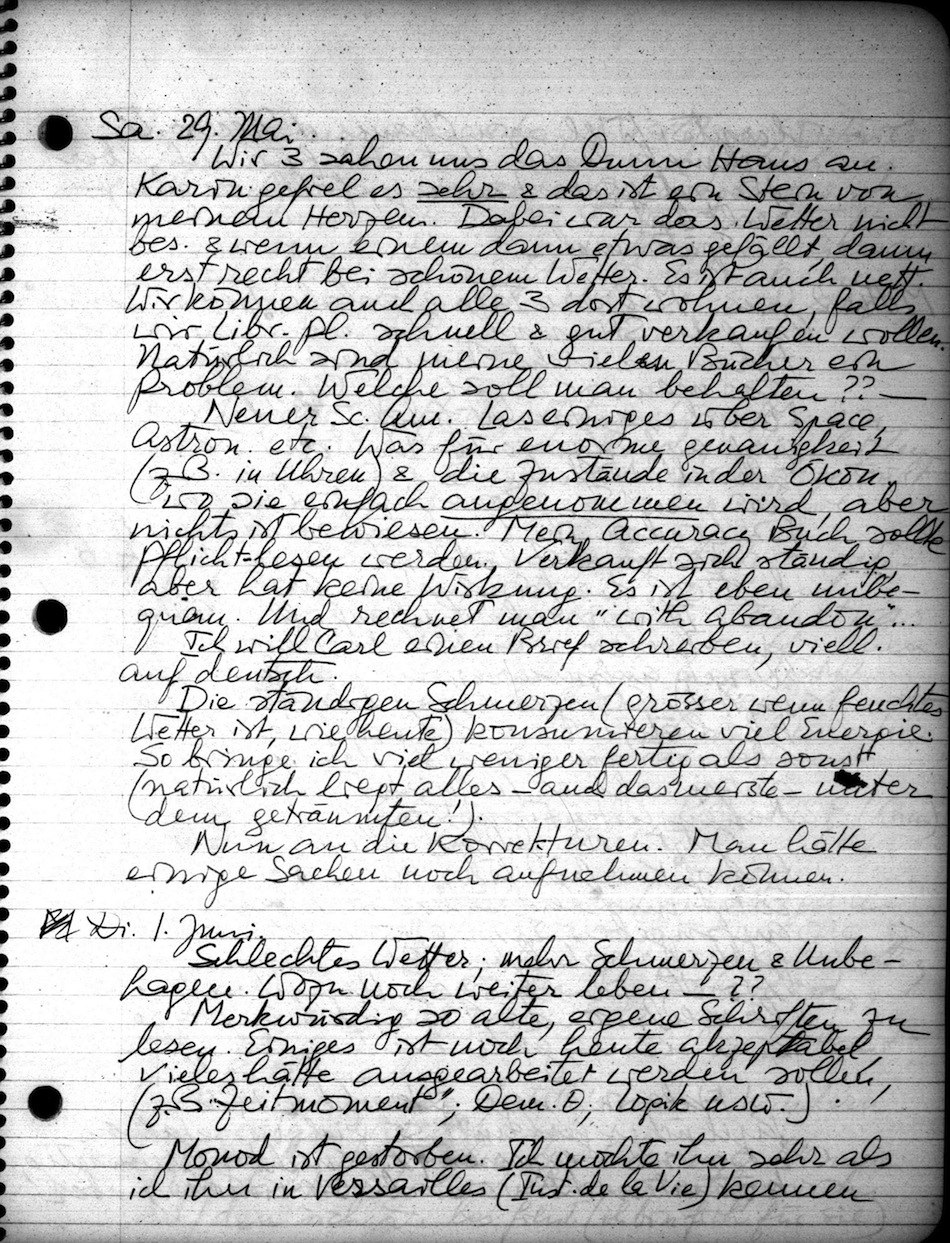 Sa. 29. Mai
Wir 3 sahen uns das Dunn Haus an.
Karin gefiel es sehr & das ist ein Stein von
meinem Herzen. Dabei war das Wetter nicht
bes. & wenn einem dann etwas gefällt, dann
erst recht bei schönem Wetter. Es ist auch nett.
Wir können auch alle 3 dort wohnen, falls
wir Libr. Pl. schnell & gut verkaufen wollen.
Natürlich sind meine vielen Bücher ein
Problem. Welche soll man behalten ?? —
Neuer Sc. Am. Las einiges über Space,
Astron. etc. Was für enorme genauigkeit
(z.B. in Uhren) & die Zustände in der Ökon.
wo sie einfach angenommen wird, aber
nichts ist bewiesen. Mein Accuracy Buch sollte
Pflicht-lesen werden. Verkauft sich ständig,
aber hat keine Wirkung. Es ist eben unbe-
quem. Und rechnet man "with abandon"...
Ich will Carl einen Brief schreiben, viell.
auf deutsch.
Die ständigen Schmerzen (grösser wenn feuchtes
Wetter ist, wie heute) konsumieren viel Energie.
So bringe ich viel weniger fertig als sonst
(natürlich liegt alles – auch das meiste – unter
dem geträumten!).
Nun an die Korrekturen. Man hätte
einige Sachen noch aufnehmen können.
Di. 1. Juni.
Schlechtes Wetter; mehr Schmerzen & Unbe-
hagen. Wozu noch weiter leben — ??
Merkwürdig so alte, eigene Schriften zu
lesen. Einiges ist noch heute akzeptabel,
vieles hätte ausgearbeitet werden sollen,
(z.B. "Zeitmoment"; Dem. θ; Logik usw.)
Monod ist gestorben. Ich mochte ihn sehr als
ich ihn in Versailles (Inst. de la Vie) kennen